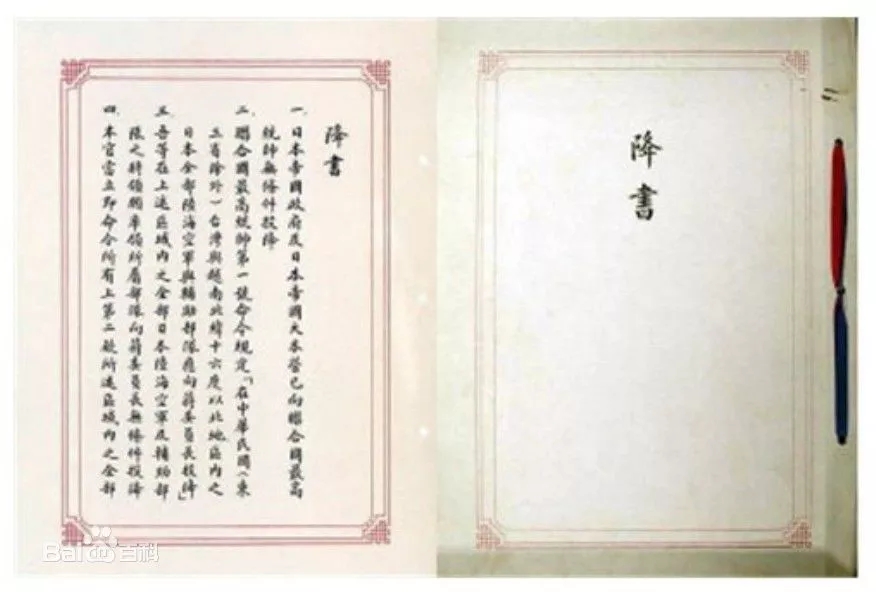 降書
降書
一、日本帝國政府及日本帝國大本營已向聯合國最高
統帥無條件投降
二、聯合國最高統帥第一號命令規定「在中華民國(東
三省除外)台灣與越南北緯十六度以北地區內之
日本全部陸海空軍與輔助部隊應向蔣委員長投降」
三、吾等在上述區域內之全部日本陸海空軍及輔助部
隊之將領願率領所屬部隊向蔣委員長無條件投降
四、本官當立即命令所有上第二款所述區域內之全部
Bai百科